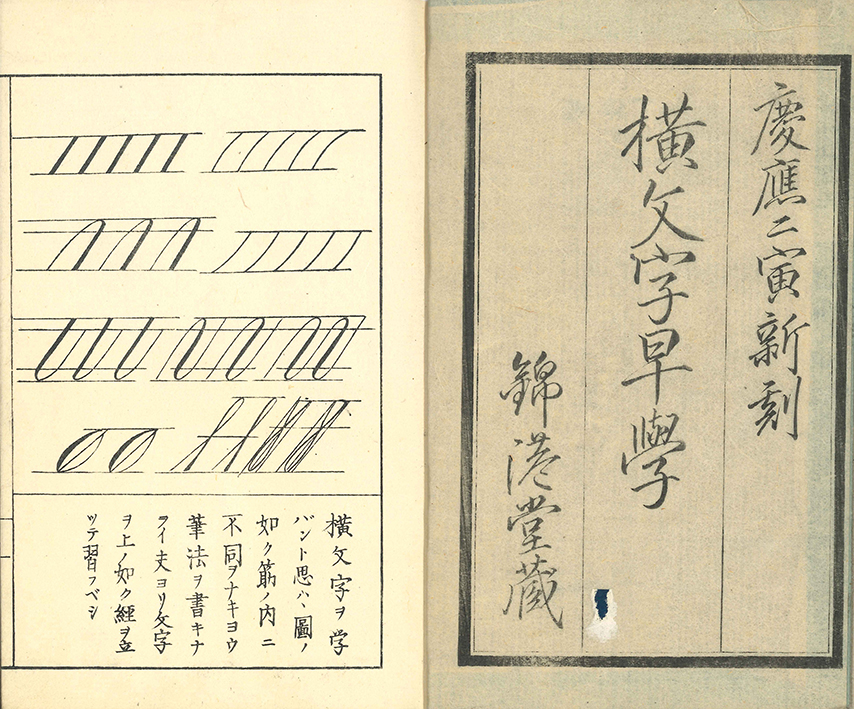 慶應二寅新刻
橫文字早學
錦港堂蔵
橫文字ヲ学
バント思ハヽ圖ノ
如ク筋ノ内ニ
不同ヲナキヨウ
筆法ヲ書キナ
ライ夫ヨリ文字
ヲ上ノ如ク經ヲ立
ツテ習フベシ